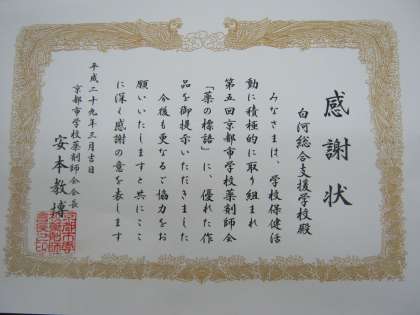 感謝状
白河総合支援学校殿
みなさまは、学校保健活
動に積極的に取り組まれ
第五回京都市学校薬剤師会
「薬の標語」に、優れた作
品を御提示いただきました
今後も更なるご協力をお
願いいたしますと共にここ
に深く感謝の意を表します
平成二十九年三月吉日
京都市学校薬剤師会会長
安本教博